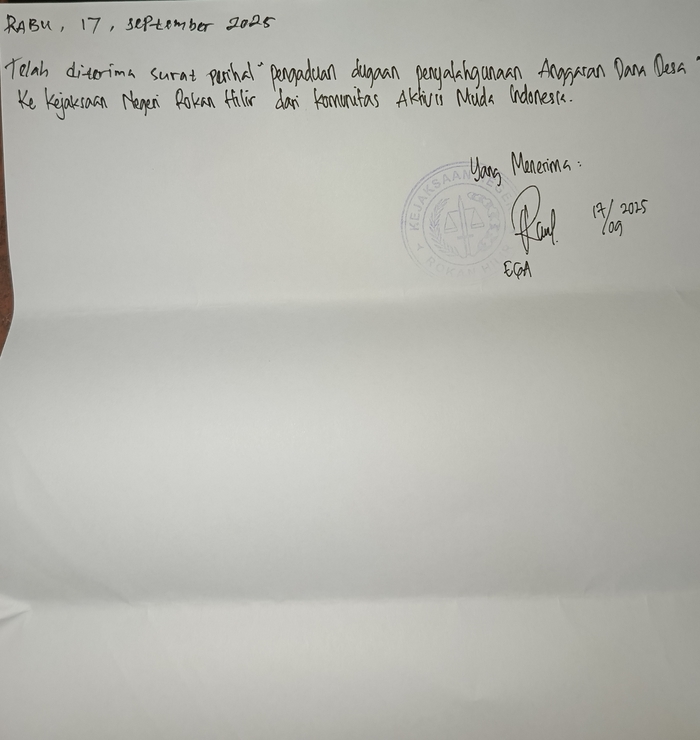 RABU, 17, September 2025
Telah diterima surat perihal "pengaduan dugaan penyalahgunaan Anggaran Dana Desa"
Ke Kejaksaan Negeri Rokan Hilir dari Komunitas Aktivis Muda Indonesia.
Yang Menerima:
KEJAKSAAN NEGERI
ROKAN HILIR
17/09 2025
EGA